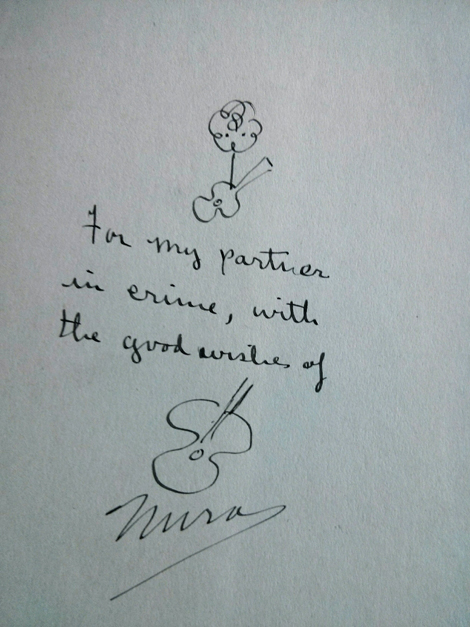 For my partner
in crime, with
the good wishes of